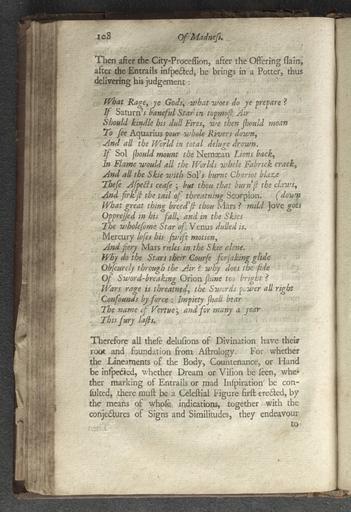 108 Of Madness.
Then after the City-Procession, after the Offering slain,
after the Entrails inspected, he brings in a Potter, thus
delivering his judgement:
What Rage, ye Gods, what woes do ye prepare?
If Saturn's baneful Star in topmost Air
Should kindle his dull Fires, we then should moan
To see Aquarius pour whole Rivers down,
And all the World in total deluge drown.
If Sol should mount the Nemæan Lions back,
In Flame would all the Worlds whole Fabrick crack,
And all the Skie with Sol's burnt Chariot blaze
These Aspects cease; but thou that burn'st the claws,
And firk'st the tail of threatning Scorpion. (down
What great thing breed'st thou Mars? mild Jove goes
Oppressed in his fall, and in the Skies
The wholesome Star of Venus dulled is.
Mercury loses his swift motion,
And fiery Mars rules in the Skie alone.
Why do the Stars their Course forsaking glide
Obscurely through the Air? why does the side
Of Sword-breaking Orion shine too bright?
Wars rage is threatned, the Swords power all right
Confounds by force: Impiety shall bear
The name of Vertue; and for many a year
This fury lasts.
Therefore all these delusions of Divination have their
root and foundation from Astrology. For whether
the Lineaments of the Body, Countenance, or Hand
be inspected, whether Dream or Vision be seen, whe-
ther marking of Entrails or mad Inspiration be con-
sulted, there must be a Celestial Figure first erected, by
the means of whose indications, together with the
conjectures of Signs and Similitudes, they endeavour
to